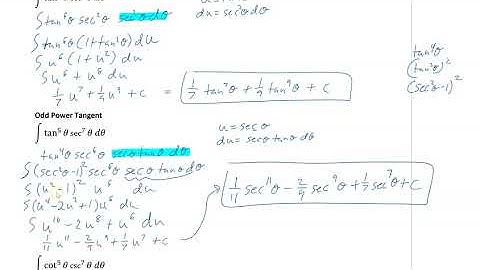 ∫ tan⁶θ sec²θ sec²θ dθ
du = sec²θ dθ
∫ tan⁶θ (1+tan²θ) du
∫ u⁶ (1+u²) du
∫ u⁶ + u⁸ du
1/7 u⁷ + 1/9 u⁹ + C = 1/7 tan⁷θ + 1/9 tan⁹θ + C
tan⁴θ
(tan²θ)²
(sec²θ-1)²
Odd Power Tangent
∫ tan⁵ θ sec⁷ θ dθ
u = secθ
du = secθ tanθ dθ
tan⁴θ sec⁶θ secθ tanθ dθ
∫ (sec²θ-1)² sec⁶θ secθ tanθ dθ
∫ (u²-1)² u⁶ du
∫ (u⁴-2u²+1) u⁶ du
∫ u¹⁰ - 2u⁸ + u⁶ du
1/11 u¹¹ - 2/9 u⁹ + 1/7 u⁷ + C
1/11 sec¹¹θ - 2/9 sec⁹θ + 1/7 sec⁷θ + C
∫ cot⁵ θ csc⁷ θ dθ